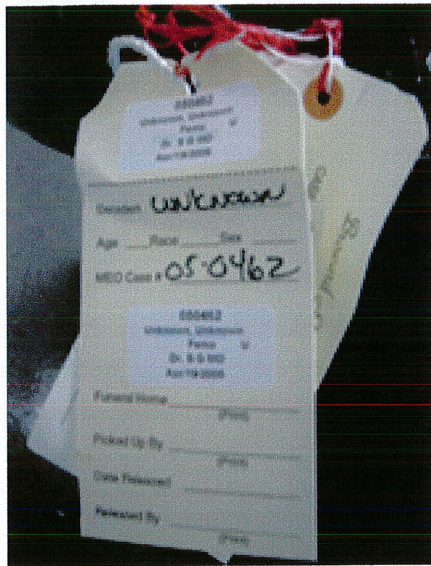 050462
Unknown, Unknown
Dr. S G MD
Decedent Unknown
Age Race Sex
MEO Case # 05-0462
050462
Unknown, Unknown
Dr. S G MD
Funeral Home
(Print)
Picked Up By
(Print)
Date Released
Released By
(Print)